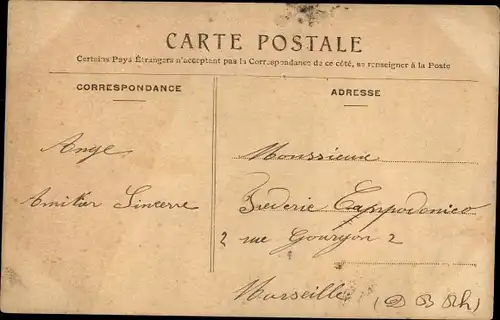 CARTE POSTALE
Certains Pays Étrangers n'acceptent pas la Correspondance de ce côté, se renseigner à la Poste
CORRESPONDANCE
Ange
Amiker Sincere
ADRESSE
Monssieur
Frederic Cappodonico
2 rue Gouryon 2
Marseille
(D B Rh)